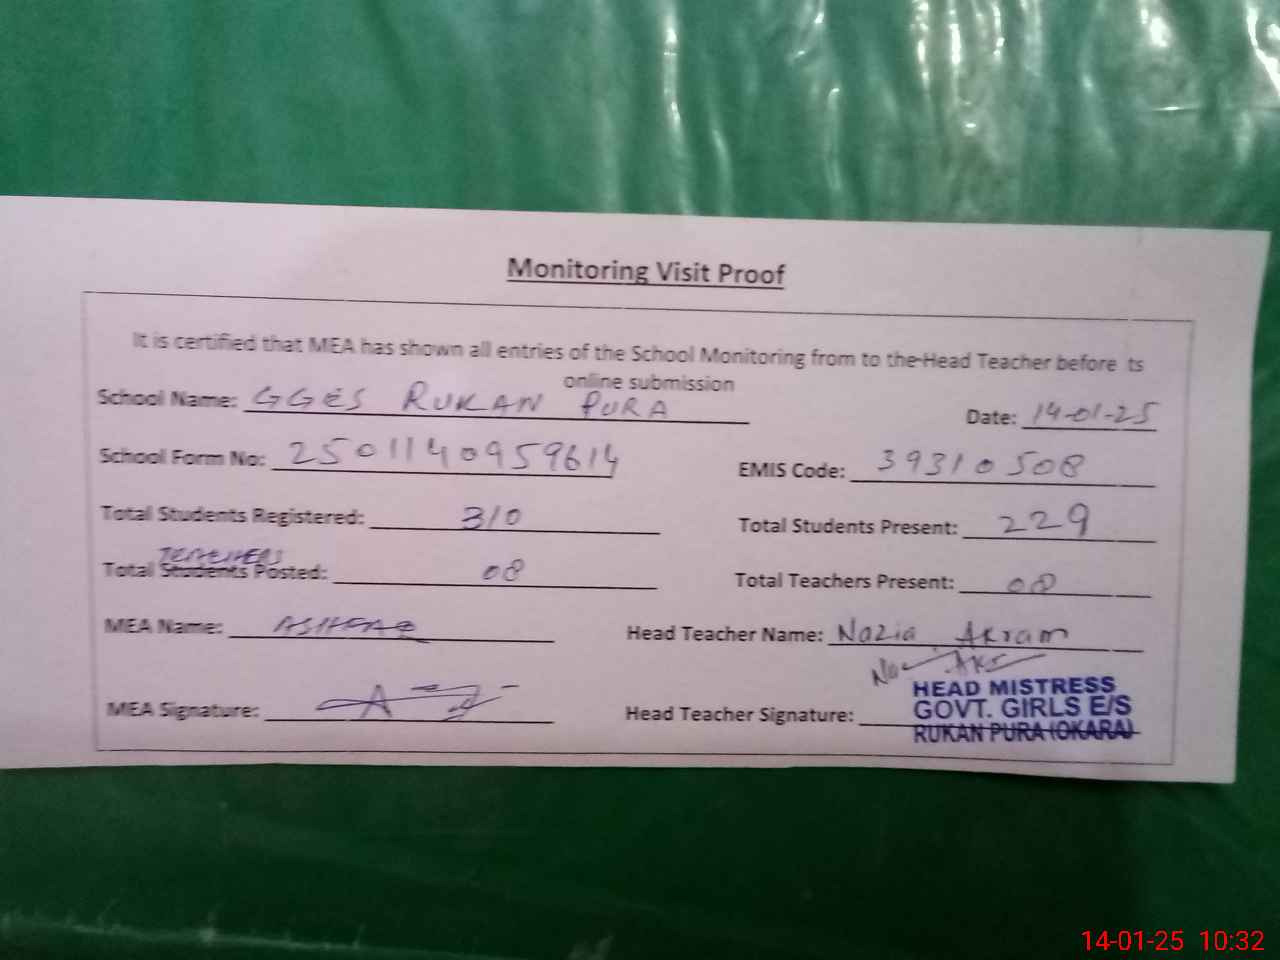 Monitoring Visit Proof
It is certified that MEA has shown all entries of the School Monitoring from to the Head Teacher before ts
online submission
School Name: GGES RUKAN PURA Date: 14-01-25
School Form No: 2501140959614 EMIS Code: 39310508
Total Students Registered: 310 Total Students Present: 229
TEACHERS
Total Students Posted: 08 Total Teachers Present: 08
MEA Name: ASHFAQ Head Teacher Name: Nazia Akram
MEA Signature: Head Teacher Signature:
HEAD MISTRESS
GOVT. GIRLS E/S
RUKAN PURA (OKARA)
14-01-25 10:32